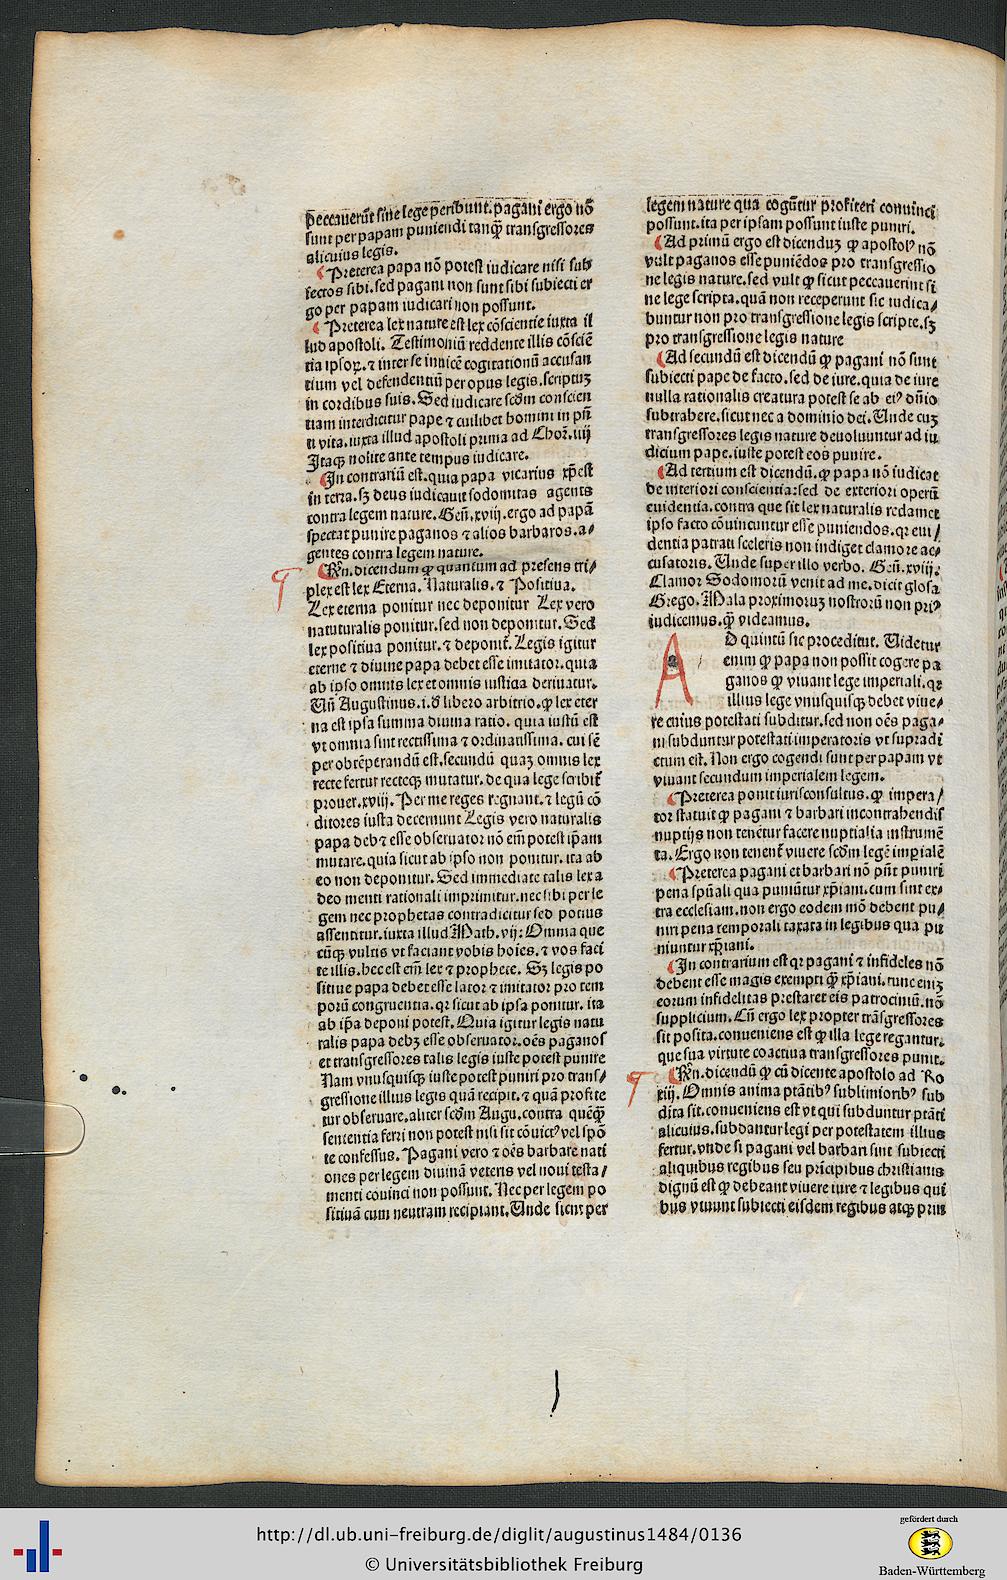 peccauerūt sine lege peribunt. pagani ergo nō
sunt per papam puniendi tanꝙ̄ transgressores
alicuius legis.
Preterea papa nō potest iudicare nisi sub
iectos sibi. sed pagani non sunt sibi subiecti er
go per papam iudicari non possunt.
Preterea lex nature est lex cōscientie iuxta il
lud apostoli. Testimoniū reddente illis cōsciē
tia ipsoꝝ. ⁊ inter se inuicē cogitationū accusan
tium vel defendentiū per opus legis. scriptuꝫ
in cordibus suis. Sed iudicare scḋm conscien
tiam interdicitur pape ⁊ cuilibet homini in pn̄
ti vita. iuxta illud apostoli prima ad Choꝝ. iiij
Itaqꝫ nolite ante tempus iudicare.
In contrariū est. quia papa vicarius xp̄i est
in terra. sꝫ deus iudicauit sodomitas agentes
contra legem nature. Geñ. xviij. ergo ad papā
spectat punire paganos ⁊ alios barbaros. a⸗
gentes contra legem nature.
Rñ. dicendum ꝙ quantum ad presens tri⸗
plex est lex Eterna. Naturalis. ⁊ Positiua.
Lex eterna ponitur nec deponitur Lex vero
natuturalis ponitur. sed non deponitur. Sed
lex positiua ponitur. ⁊ deponit᷑. Legis igitur
eterne ⁊ diuine papa debet esse imitator. quia
ab ipso omnis lex et omnis iusticia deriuatur.
Uñ Augustinus. i. đ libero arbitrio. ꝙ lex eter
na est ipsa summa diuina ratio. quia iustū est
vt omnia sint rectissima ⁊ ordinatissima. cui sē
per obtēperandū est. secundū quaꝫ omnis lex
recte fertur recteqꝫ mutatur. de qua lege scribit᷑
prouer. xviij. Per me reges regnant. ⁊ legū cō
ditores iusta decernunt Legis vero naturalis
papa debꝫ esse obseruator nō em̄ potest ip̄am
mutare. quia sicut ab ipso non ponitur. ita ab
eo non deponitur. Sed immediate talis lex a
deo menti rationali imprimitur. nec sibi per le
gem nec prophetas contradicitur sed potius
assentitur. iuxta illud Math. vij: Omnia que
cūqꝫ vultis vt faciant vobis hoīes. ⁊ vos faci
te illis. hec est em̄ lex ⁊ prophete. Sꝫ legis po
sitiue papa debet esse lator ⁊ imitator pro tem
porū congruentia. qꝛ sicut ab ipsa ponitur. ita
ab ip̄a deponi potest. Quia igitur legis natu
ralis papa debꝫ esse obseruator. oēs paganos
et transgressores talis legis iuste potest punire
Nam vnusquisqꝫ iuste potest puniri pro trans⸗
gressione illius legis quā recipit. ⁊ quā profite
tur obseruare. aliter scḋm Augu. contra quēqꝙ̄
sententia ferri non potest nisi sit cōuictꝰ vel spō
te confessus. Pagani vero ⁊ oēs barbare nati
ones per legem diuinā veteris vel noui testa⸗
menti cōuinci non possunt. Nec per legem po
sitiuā cum neutram recipiant. Unde sicut per
legem nature qua cogūtur profiteri conuinci
possunt. ita per ipsam possunt iuste puniri.
Ad primū ergo est dicenduꝫ ꝙ apostolꝰ nō
vult paganos esse puniēdos pro transgressio
ne legis nature. sed vult ꝙ sicut peccauerint si
ne lege scripta. quā non receperunt sic iudica⸗
buntur non pro transgressione legis scripte. sꝫ
pro transgressione legis nature
Ad secundū est dicendū ꝙ pagani nō sunt
subiecti pape de facto. sed de iure. quia de iure
nulla rationalis creatura potest se ab eiꝰ dn̄io
subtrahere. sicut nec a dominio dei. Unde cuꝫ
transgressores legis nature deuoluuntur ad iu
dicium pape. iuste potest eos punire.
Ad tertium est dicendū. ꝙ papa nō iudicat
de interiori conscientia: sed de exteriori operū
euidentia. contra que sit lex naturalis reclamet
ipso facto cōuincuntur esse puniendos. qꝛ eui⸗
dentia patrati sceleris non indiget clamore ac⸗
cusatoris. Unde super illo verbo. Geñ. xviij:
Clamor Sodomorū venit ad me. dicit glosa
Grego. Mala proximoruꝫ nostrorū non priꝰ
iudicemus. ꝙ̄ videamus.
AD quintū sic proceditur. Uidetur
enim ꝙ papa non possit cogere pa
ganos ꝙ viuant lege imperiali. qꝛ
illius lege vnusquisqꝫ debet viue⸗
re cuius potestati subditur. sed non oēs paga⸗
ni subduntur potestati imperatoris vt supradi
ctum est. Non ergo cogendi sunt per papam vt
viuant secundum imperialem legem.
Preterea ponit iurisconsultus. ꝙ impera⸗
tor statuit ꝙ pagani ⁊ barbari incontrahendis
nuptijs non tenētur facere nuptialia instrumē
ta. Ergo non tenent᷑ viuere scḋm legē imꝑialē
Preterea pagani et barbari nō pn̄t puniri
pena spūali qua puniūtur xp̄iani. cum sint ex⸗
tra ecclesiam. non ergo eodem mō debent pu⸗
niri pena temporali taxata in legibus qua pu
niuntur xp̄iani.
In contrarium est qꝛ pagani ⁊ infideles nō
debent esse magis exempti ꝙ̄ xp̄iani. tunc eniꝫ
eorum infidelitas prestaret eis patrociniū. nō
supplicium. Cū ergo lex propter trāsgressores
sit posita. conueniens est ꝙ illa lege regantur.
que sua virtute coactiua transgressores punit.
Rñ. dicendū ꝙ cū dicente apostolo ad Ro
xiij. Omnis anima ptātibꝰ sublimioribꝰ sub
dita sit. conueniens est vt qui subduntur ptāti
alicuius. subdantur legi per potestatem illius
fertur. vnde si pagani vel barbari sunt subiecti
aliquibus regibus seu prīcipibus christianis
dignū est ꝙ debeant viuere iure ⁊ legibus qui
bus viuunt subiecti eisdem regibus atqꝫ prin
http://dl.ub.uni-freiburg.de/diglit/augustinus1484/0136
© Universitätsbibliothek Freiburg
gefördert durch
Baden-Württemberg